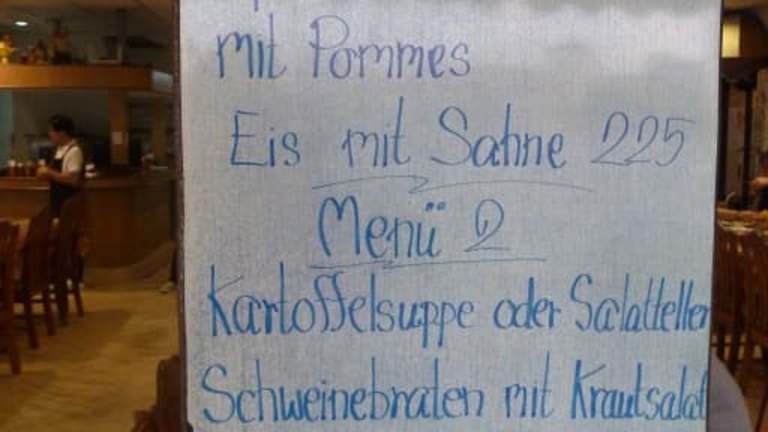 mit Pommes
Eis mit Sahne 225
Menü 2
Kartoffelsuppe oder Salatteller
Schweinebraten mit Krautsalat